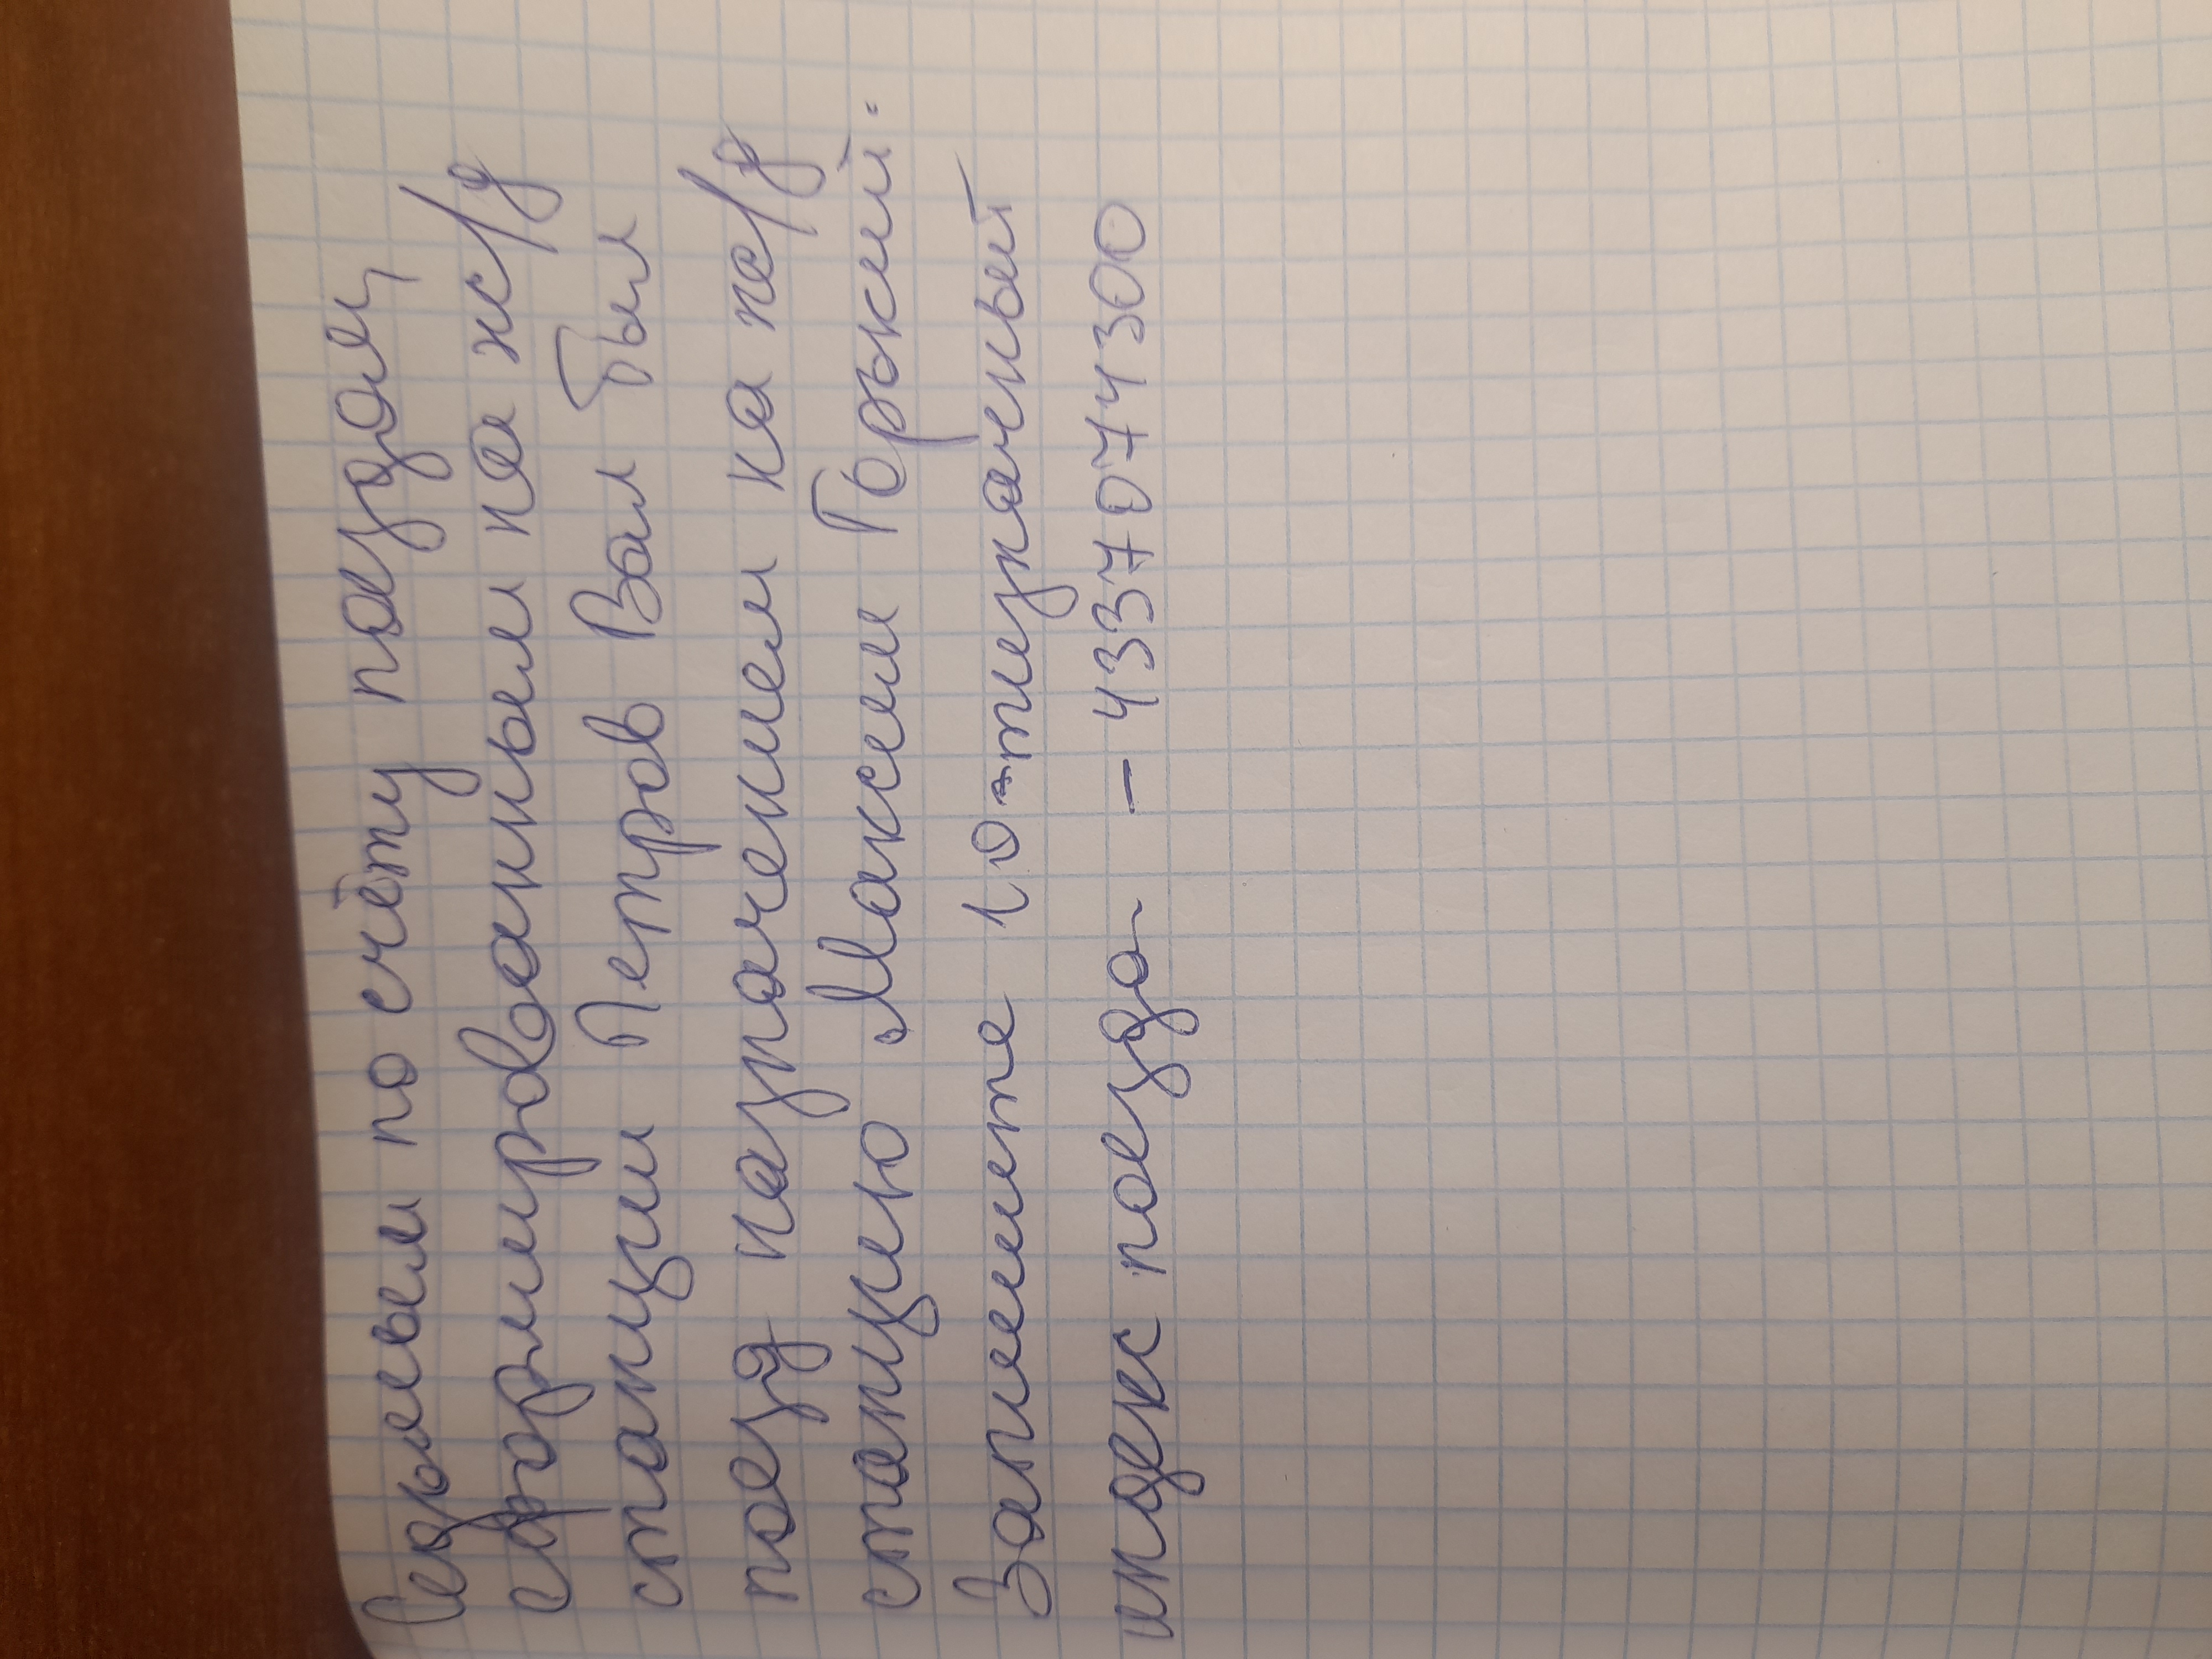 Седьмым по счёту поездом,
сформированным на ж/д
станции Петров Вал был
поезд назначением на ж/д
станцию „Максим Горький".
Запишите 10-тизначный
индекс поезда – 4337074300